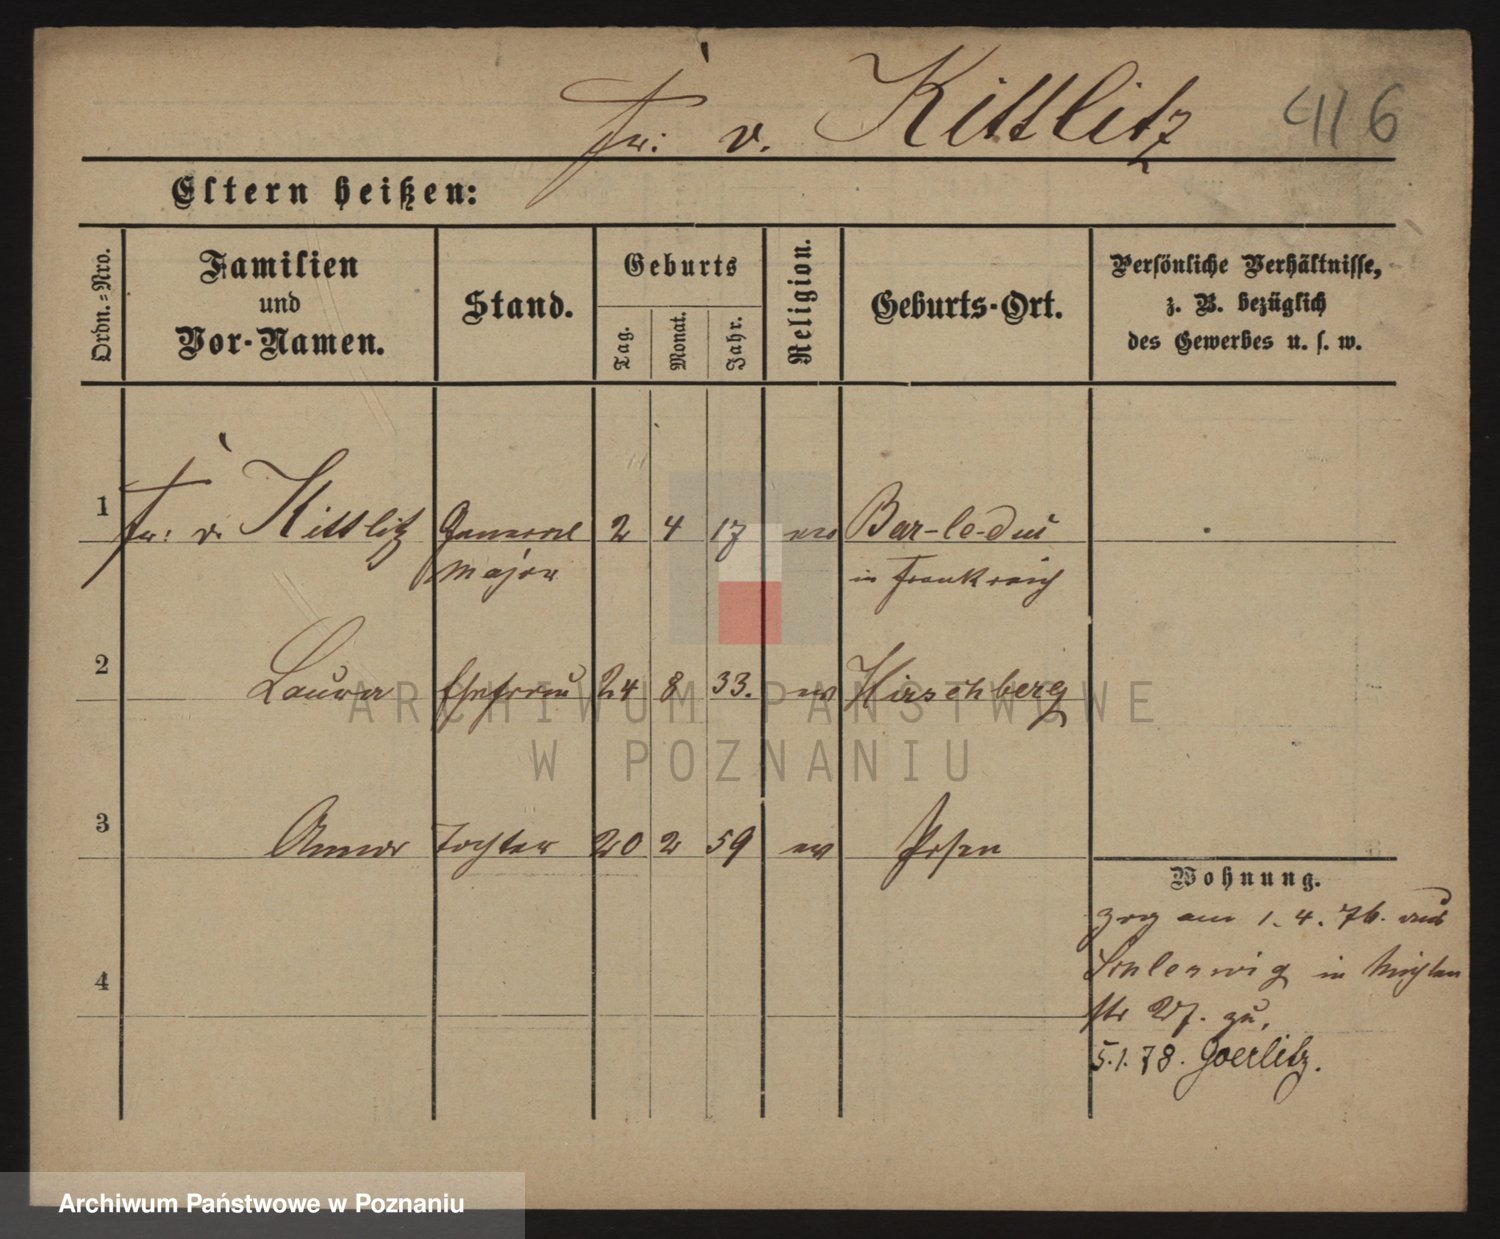 Fr: v. Kittlitz 416
Eltern heißen:
Ordn.=Nro.
Familien
und
Vor-Namen.
Stand.
Geburts
Tag.
Monat.
Jahr.
Religion.
Geburts-Ort.
Persönliche Verhältnisse,
z. B. bezüglich
des Gewerbes u. s. w.
1 Fr: v. Kittlitz General 2 4 17 ev Bar-le-duc
major in Frankreich
2 Laura Ehefrau 24 8 33. ev Hirschberg
3 Anna Tochter 20 2 59 ev Posen
Wohnung.
zog am 1. 4. 76. aus
4 Schleswig in
str zu,
5.1.78. Goerlitz.
ARCHIWUM PAŃSTWOWE
W POZNANIU
Archiwum Państwowe w Poznaniu